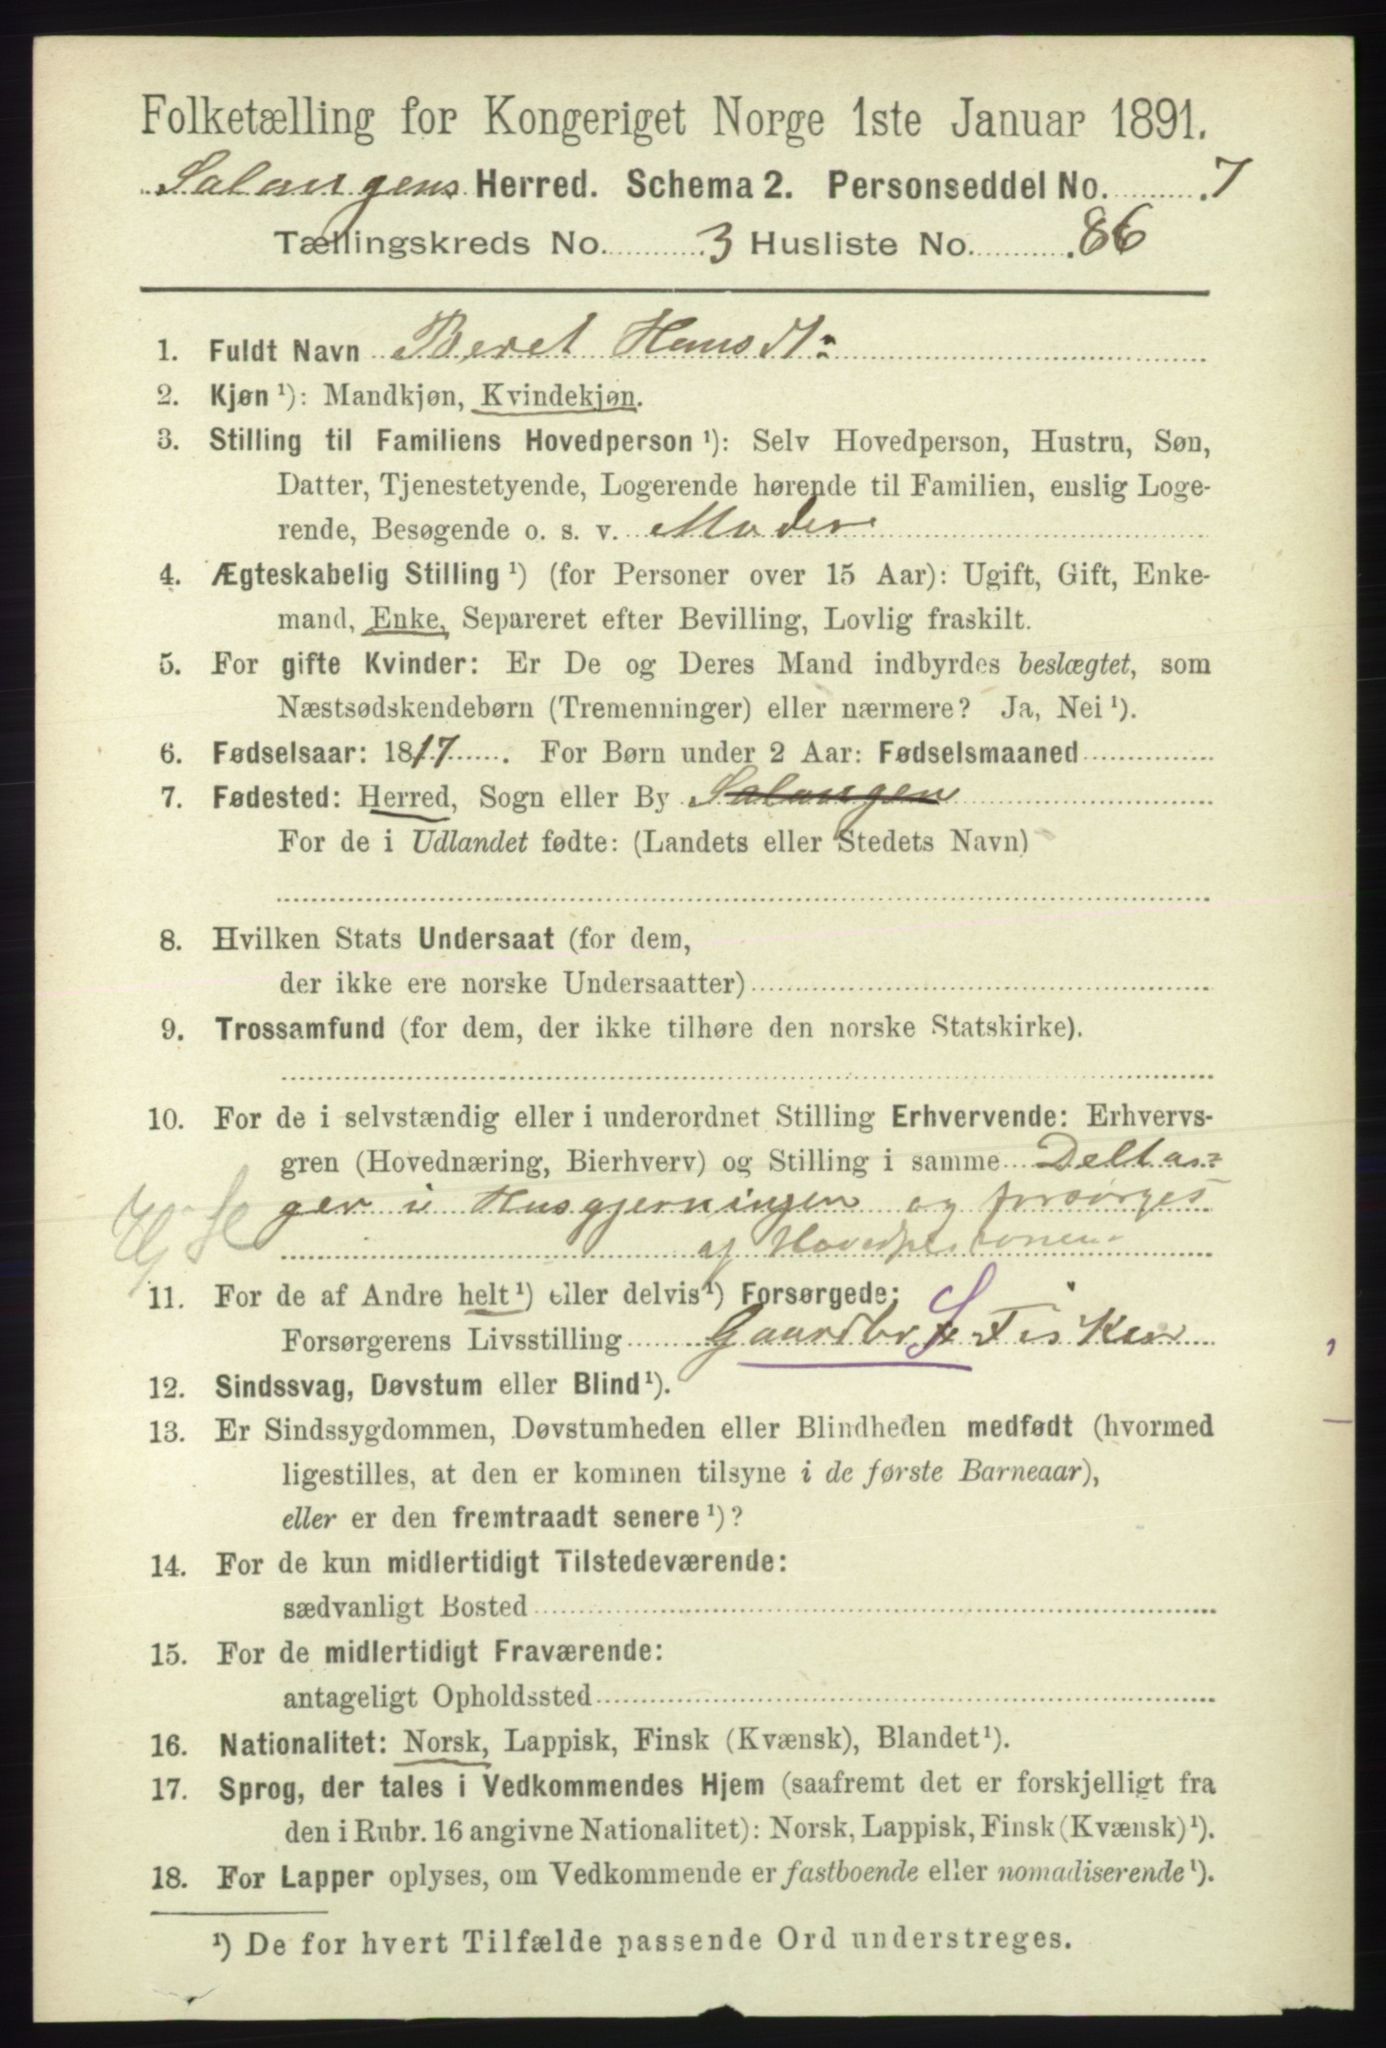 Folketælling for Kongeriget Norge 1ste Januar 1891.
Salangens Herred. Schema 2. Personseddel No. 7
Tællingskreds No. 3 Husliste No. 86
1. Fuldt Navn Beret Hansdtr
2. Kjøn ¹): Mandkjøn, Kvindekjøn.
3. Stilling til Familiens Hovedperson ¹): Selv Hovedperson, Hustru, Søn,
Datter, Tjenestetyende, Logerende hørende til Familien, enslig Loge-
rende, Besøgende o. s. v. Moder
4. Ægteskabelig Stilling ¹) (for Personer over 15 Aar): Ugift, Gift, Enke-
mand, Enke, Separeret efter Bevilling, Lovlig fraskilt.
5. For gifte Kvinder: Er De og Deres Mand indbyrdes beslægtet, som
Næstsødskendebørn (Tremenninger) eller nærmere? Ja, Nei ¹).
6. Fødselsaar: 1817. For Børn under 2 Aar: Fødselsmaaned
7. Fødested: Herred, Sogn eller By Salangen
For de i Udlandet fødte: (Landets eller Stedets Navn)
8. Hvilken Stats Undersaat (for dem,
der ikke ere norske Undersaatter)
9. Trossamfund (for dem, der ikke tilhøre den norske Statskirke).
10. For de i selvstændig eller i underordnet Stilling Erhvervende: Erhvervs-
gren (Hovednæring, Bierhverv) og Stilling i samme Delta-
ger i Husgjerningen og forsørges
af Hovedpersonen
11. For de af Andre helt ¹) eller delvis ¹) Forsørgede:
Forsørgerens Livsstilling Gaardbr S Fisker
12. Sindssvag, Døvstum eller Blind ¹).
13. Er Sindssygdommen, Døvstumheden eller Blindheden medfødt (hvormed
ligestilles, at den er kommen tilsyne i de første Barneaar),
eller er den fremtraadt senere ¹)?
14. For de kun midlertidigt Tilstedeværende:
sædvanligt Bosted
15. For de midlertidigt Fraværende:
antageligt Opholdssted
16. Nationalitet: Norsk, Lappisk, Finsk (Kvænsk), Blandet ¹).
17. Sprog, der tales i Vedkommendes Hjem (saafremt det er forskjelligt fra
den i Rubr. 16 angivne Nationalitet): Norsk, Lappisk, Finsk (Kvænsk) ¹).
18. For Lapper oplyses, om Vedkommende er fastboende eller nomadiserende ¹).
¹) De for hvert Tilfælde passende Ord understreges.